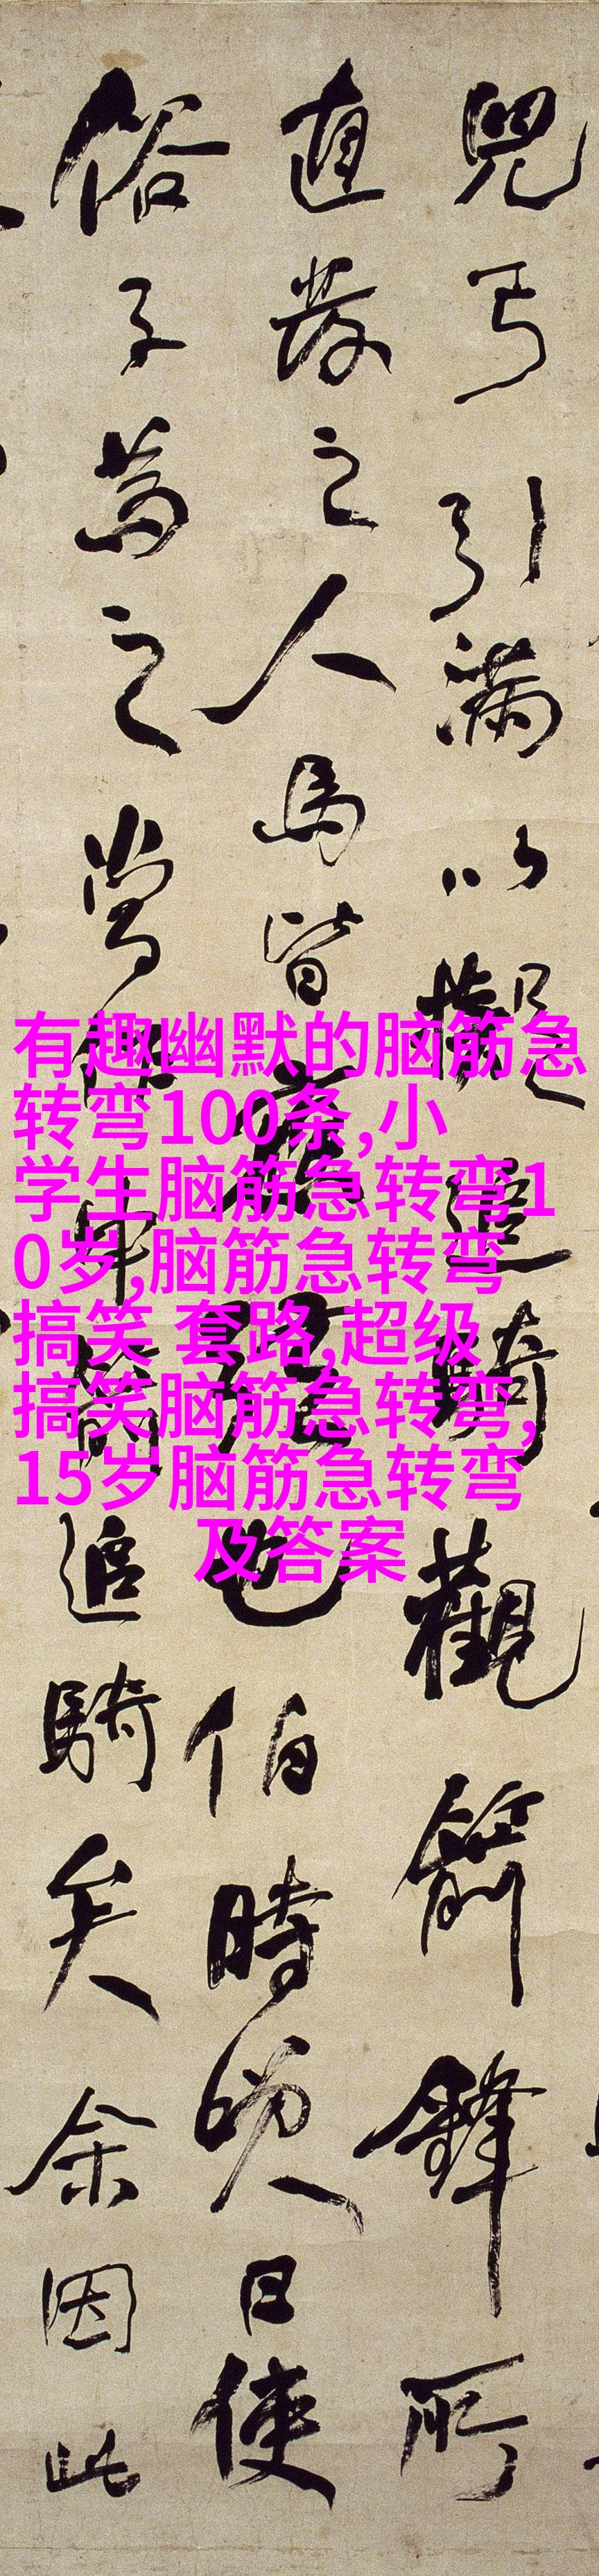 兒弓引滿以擬追騎觀箭鋒所
直發之人馬皆應弦也伯時笑曰使
俗子為之當作中箭追騎矣余因此
有趣幽默的脑筋急
转弯100条,小
学生脑筋急转弯1
0岁,脑筋急转弯
搞笑 套路,超级
搞笑脑筋急转弯,
15岁脑筋急转弯
及答案